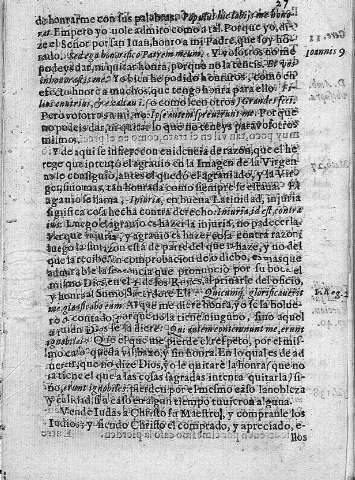 27
de honrarme con sus palabras. Populus hic labijs me hono
rat. Empero yo no le admito como a tal. Porque yo, di-
ze el Señor por san Iuan, honro a mi Padre, que soy hõ-
rado. Sed ego honorifico Patrem meum. Y vosotros no me
podeys dar, ni quitar honra, porque no la teneis. Et vos
inhonorastis me. Yo bien he podido honraros, como en
efecto honrè a muchos, que tengo honra para ello. Fi-
lios enutriui, & exaltaui. (o como leen otros) Grandes feci.
Pero vosotros a mi, no. Ipsi autem spreuerunt me. Por que
no podeis dar, ni quitar lo que no teneys para vosotros
mismos.
Y de aqui se infiere con euidencia de razon, que el he
rege que intentò el agrauio en la Imagen de la Virgen
no le consiguio, antes el quedò el agrauiado, y la Vir-
gen, si no mas, tan honrada como siempre se estaua. El
agrauio se llama, Iniuria, en buena Latinidad, injuria
significa cosa hecha contra derecho: Iniuria, id est, contra
ius. Luego el agrauio es hazer la injuria, no padecerla.
Y es que injuria, y agrauio es hazer cosa contra razon;
luego la sinrazon està de parte del que la haze, y no del
que la recibe. en comprobacion de lo dicho, es mas que
admirable la sentencia que pronunciò por su boca el
mismo Dios, en el 2. de los Reyes, al priuarle del oficio,
y honra al Sumo Sacerdote Eli. Quicumque glorificauerit
me, glorificabo eum. Al que me diere honra, yo se la bolue
rè
porque no la tiene ninguno, sino aquel
a quien Dios se la diere. Qui autem contemnunt me, erunt
ignobiles. O el que me pierde el respeto, por el mis-
mo caso queda vil, baxo, y sin honra. En lo qual es de ad
uertir, que no dize Dios, yo le quitarè la honra, que no
la tiene el que a las cosas sagradas intenta quitarla; si
no, erunt ignobiles: pierden por el mismo caso la nobleza
y calidad, si a caso en algun tiempo tuuieron alguna.
Vende Iudas a Christo su Maestro, y compranle los
Iudios; y siendo Christo el comprado, y apreciado, e-
llos
Ioannis 9